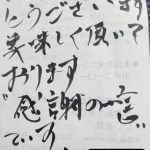 とうございます
美味しく頂いて
おります
感謝の言
です